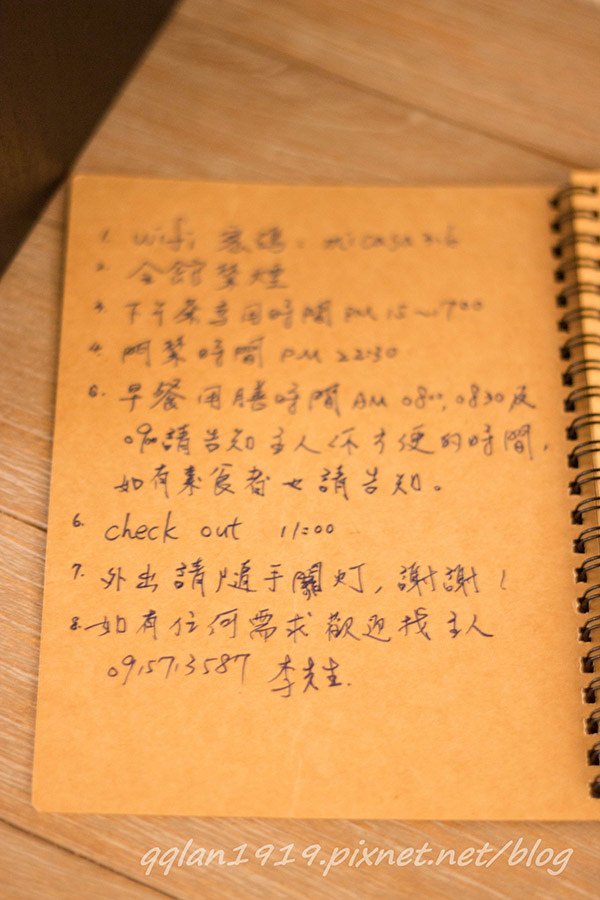 1. wifi 密碼:
2. 会館禁煙
3. 下午茶享用時間 PM 15~1700
4. 門禁時間 PM 22:30
5. 早餐用膳時間 AM 0800, 0830及
請告知主人你方便的時間,
如有素食者也請告知。
6. check out 11:00
7. 外出請隨手關灯, 謝謝!
8. 如有任何需求歡迎找主人
李先生.
qqlan1919.pixnet.net/blog